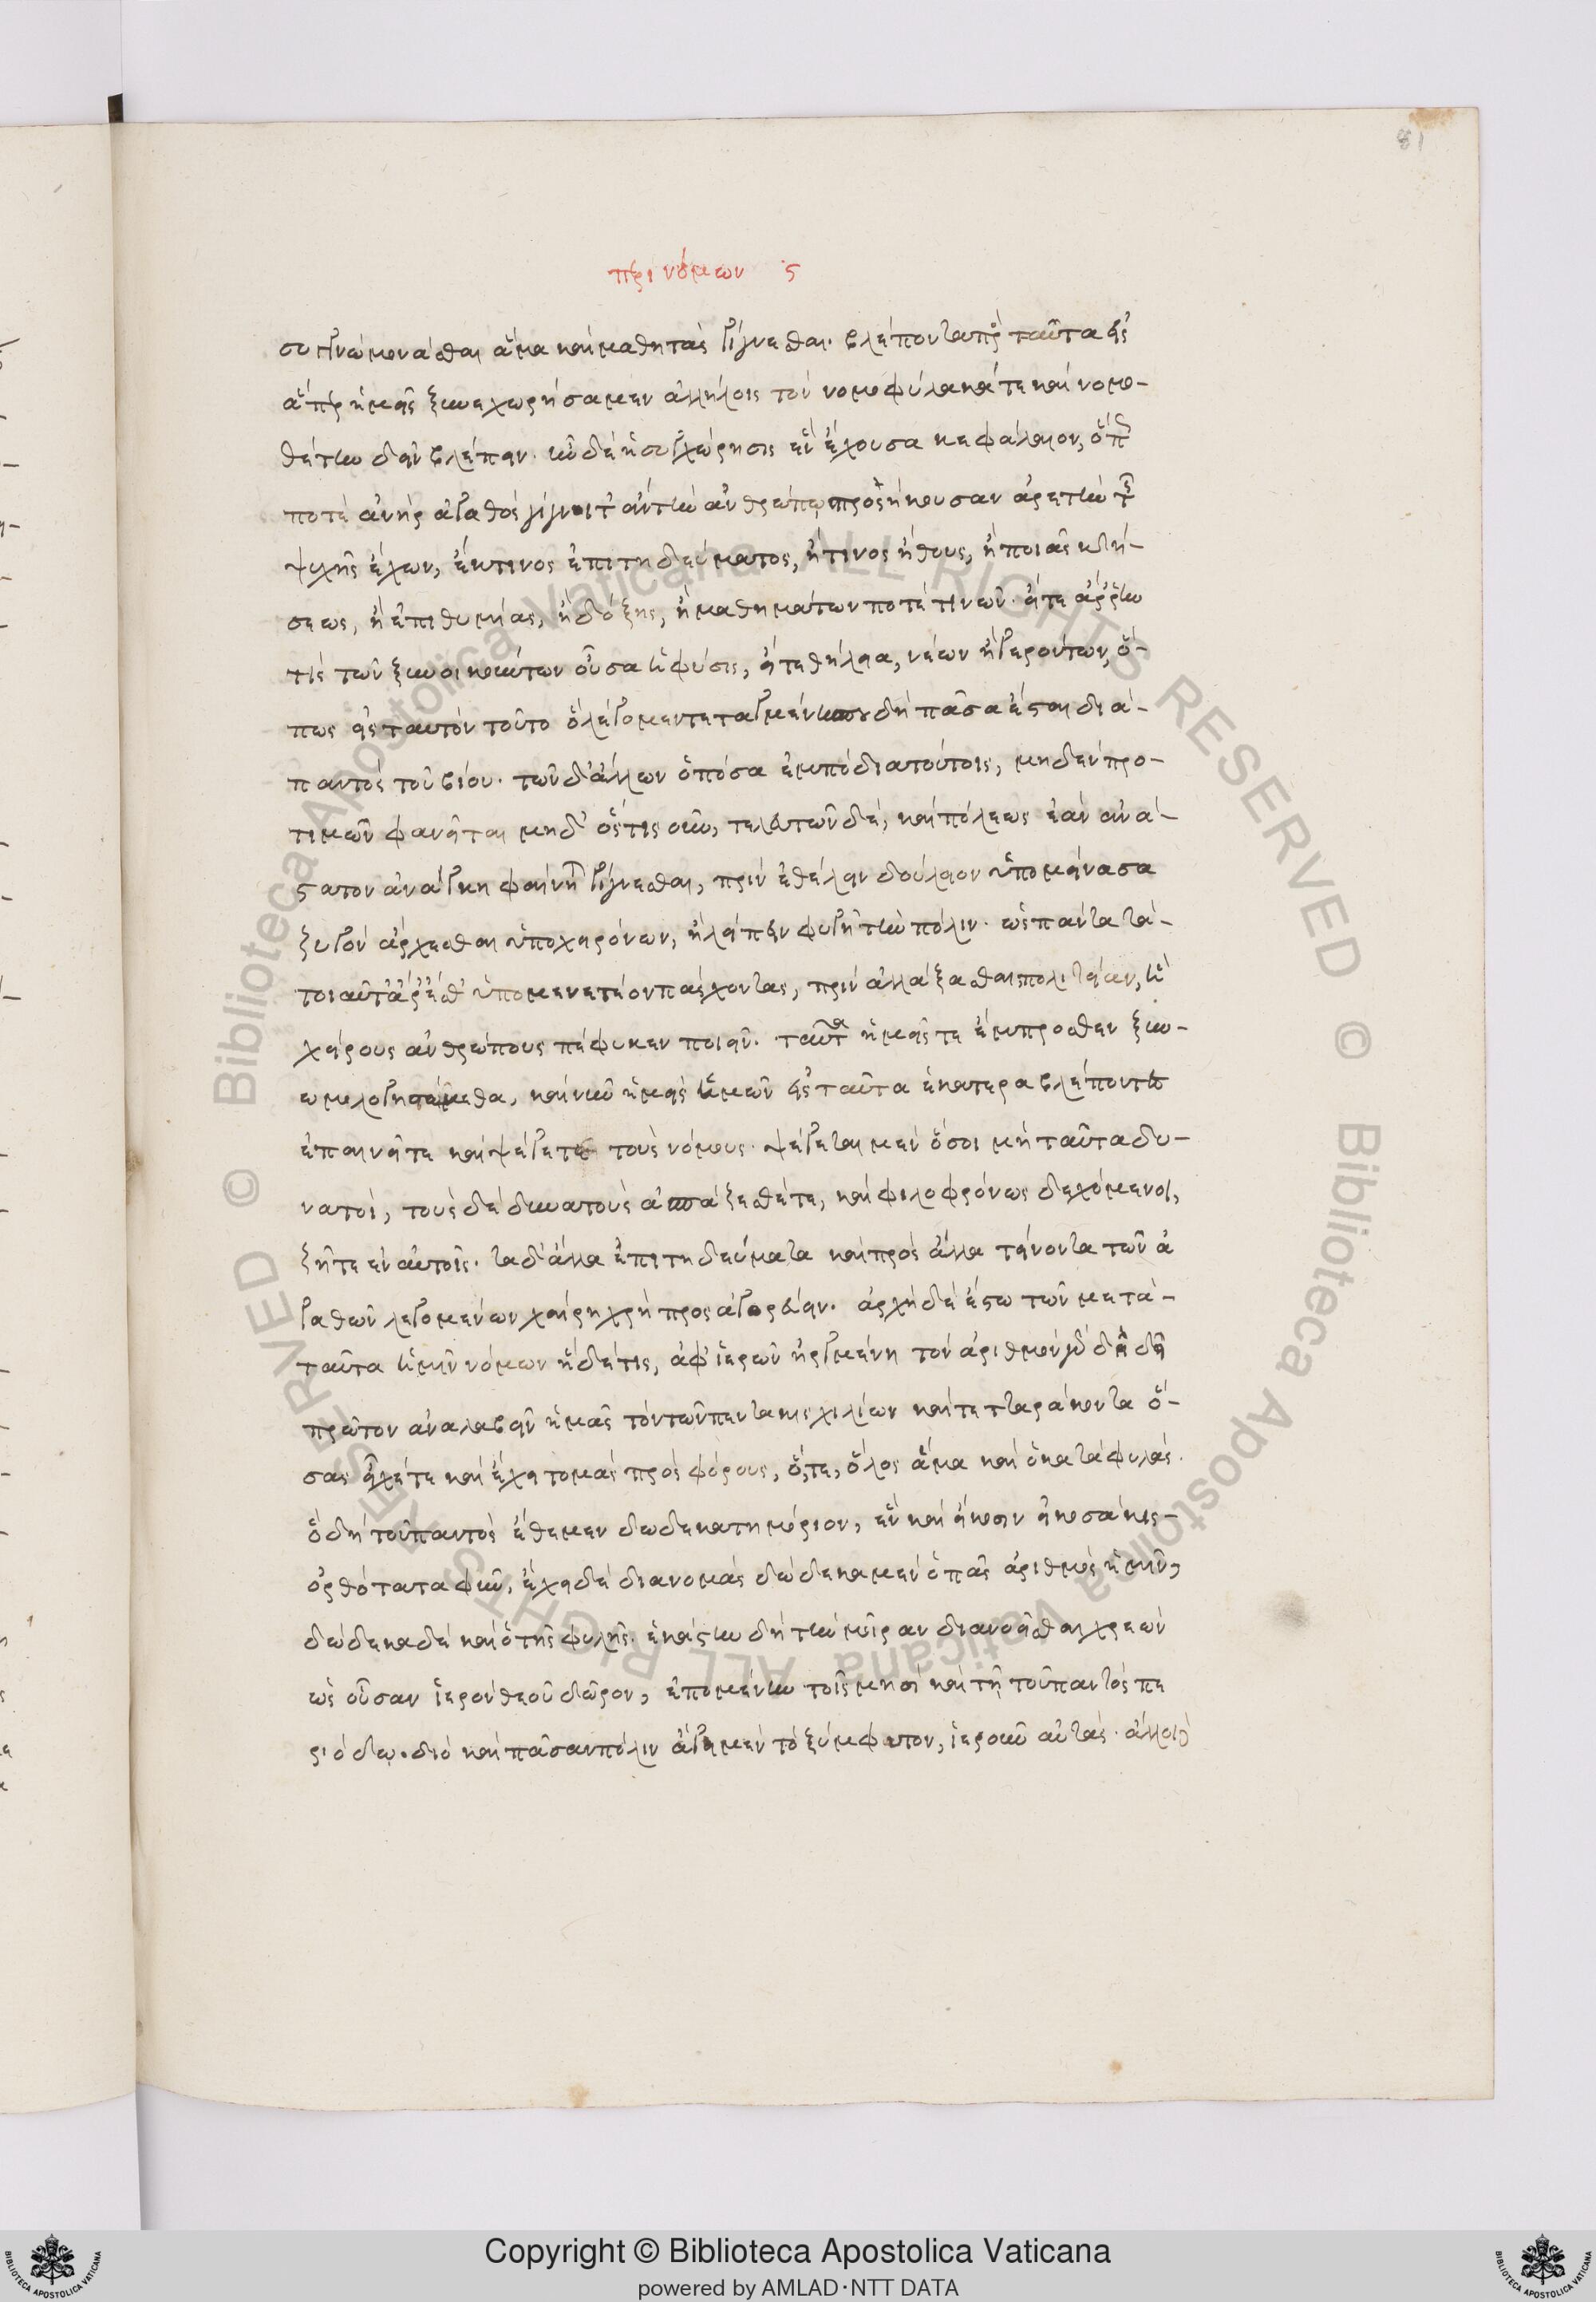 81
περὶ νόμων ϛ
συγγνώμονάσθαι ἅμα καὶ μαθητὰς γίγνεσθαι. βλέποντα πρὸς ταῦτα εἰς
ἅπερ ἡμεῖς ξυνεχωρήσαμεν ἀλλήλοις τὸν νομοφύλακά τε καὶ νομο-
θέτην δεῖν βλέπειν. ἦν δὲ ἡ συγχώρησις ἓν ἔχουσα κεφάλαιον, ὅπως
ποτὲ ἀνὴρ ἀγαθὸς γίγνοιτ' ἂν τὴν ἀνθρώπῳ προσήκουσαν ἀρετὴν τῆς
ψυχῆς ἔχων, ἔκ τινος ἐπιτηδεύματος, ἤ τινος ἤθους, ἢ ποιᾶς κτή-
σεως, ἢ ἐπιθυμίας, ἢ δόξης, ἢ μαθημάτων ποτέ τινων. εἴτε ἄρρην
τὶς τῶν ξυνοικούντων οὖσα ἡ φύσις, εἴτε θήλεια, νέων ἢ γερόντων, ὅ-
πως εἰς ταυτὸν τοῦτο ὃ λέγομεν τεταγμένη σπουδὴ πᾶσα ἔσται διὰ-
παντὸς τοῦ βίου. τῶν δ' ἄλλων ὁπόσα ἐμπόδια τούτοις, μηδὲν προ-
τιμῶν φανεῖται μηδ' ὅστις οὖν, τελευτῶν δὲ, καὶ πόλεως ἐὰν ἀνά-
στατον ἀνάγκη φαίνηται γίγνεσθαι, πρὶν ἐθέλειν δούλειον ὑπομείνασα
ζυγὸν ἄρχεσθαι ὑπὸ χειρόνων, ἢ λείπειν φυγῇ τὴν πόλιν. ὡς πάντα τὰ-
τοιαῦτ' ἄρ' ἔσθ' ὑπομενετέον πάσχοντας, πρὶν ἀλλάξασθαι πολιτείαν, ἣ
χείρους ἀνθρώπους πέφυκεν ποιεῖν. ταῦτα ἡμεῖς τε ἔμπροσθεν ξυν-
ωμολογησάμεθα, καὶ νῦν ἡμεῖς ἡμῶν εἰς ταῦτα ἑκάτερα βλέποντες
ἐπαινεῖτε καὶ ψέγετε τοὺς νόμους. ψέγεται μὲν ὅσοι μὴ ταῦτα δυ-
νατοί, τοὺς δὲ δυνατοὺς ἀσπάζεσθέτε, καὶ φιλοφρόνως δεχόμενοι,
ζῆτε ἐν αὐτοῖς. τὰ δ' ἄλλα ἐπιτηδεύματα καὶ πρὸς ἄλλα τείνοντα τῶν ἀ
γαθῶν λεγομένων χαίρειν χρὴ προσαγορεύειν. ἀρχὴ δὲ ἔστω τῶν μετὰ-
ταῦτα ἡμῖν νόμων ἥδε τις, ἀφ' ἱερῶν ἠργμένη τὸν ἀριθμὸν γὰρ δὴ δεῖ
πρῶτον ἀναλαβεῖν ἡμᾶς τὸν τῶν πεντακισχιλίων καὶ τετταράκοντα ὅ-
σας εἶχέ τε καὶ ἔχει τομὰς πρὸς φόρους, ὅ,τε, ὅλος ἅμα καὶ ὁ κατὰ φυλάς.
ὃ δὴ τοῦ παντὸς ἔθεμεν δωδεκατημόριον, ἓν καὶ εἴκοσιν εἰκοσάκις-
ὀρθότατα φύν, ἔχει δὲ διανομὰς δώδεκα μὲν ὁ πᾶς ἀριθμὸς ἡμῖν,
δώδεκα δὲ καὶ ὁ τῆς φυλῆς. ἑκάστην δὴ τὴν μοῖραν διανοεῖσθαι χρεὼν
ὡς οὖσαν ἱερὸν θεοῦ δῶρον, ἑπομένην τοῖς μησὶ καὶ τῇ τοῦ παντὸς πε
ριόδῳ. διὸ καὶ πᾶσαν πόλιν ἄγει μὲν τὸ ξύμφυτον, ἱεροῦν αὐτάς. ἄλλοι δὲ
© Biblioteca Apostolica Vaticana ALL RIGHTS RESERVED
Copyright © Biblioteca Apostolica Vaticana
powered by AMLAD·NTT DATA
BIBLIOTECA APOSTOLICA VATICANA
BIBLIOTECA APOSTOLICA VATICANA